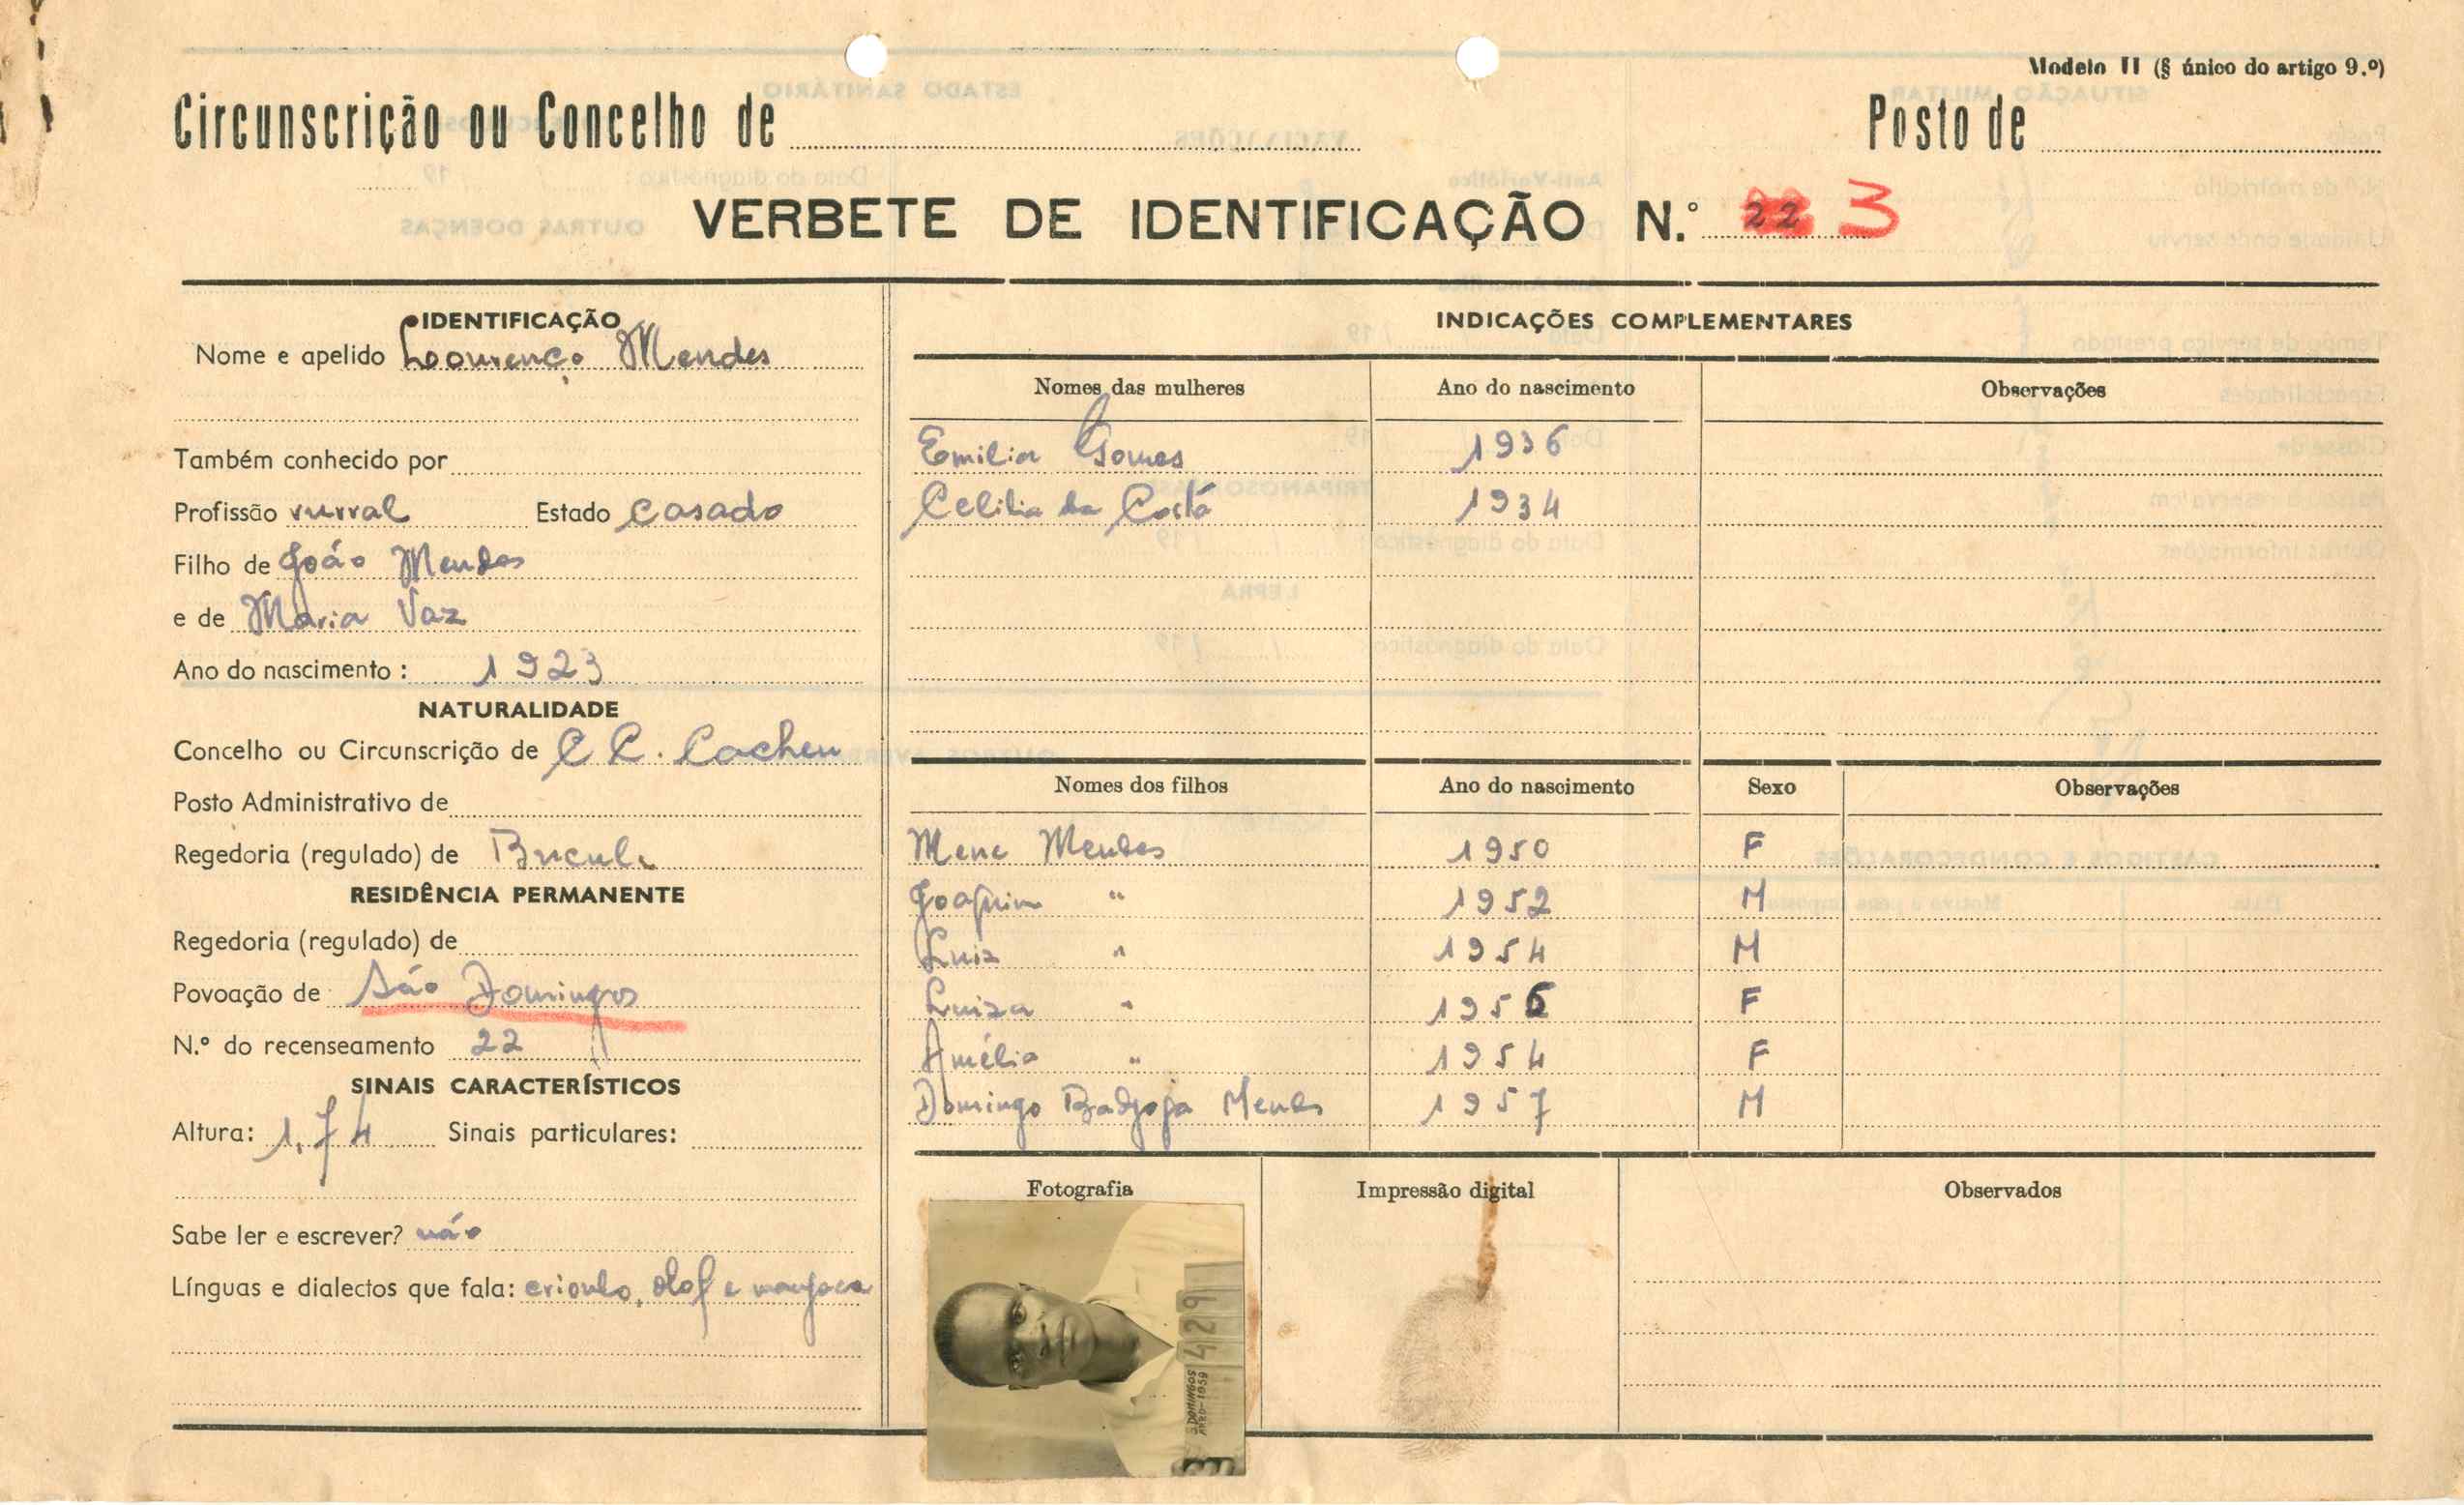 Modelo II (§ único do artigo 9.º)
Circunscrição ou Concelho de
Posto de
VERBETE DE IDENTIFICAÇÃO N.º 22 3
IDENTIFICAÇÃO
Nome e apelido Loourenço Mendes
Também conhecido por
Profissão rurral Estado casado
Filho de João Mendes
e de Maria Vaz
Ano do nascimento: 1923
NATURALIDADE
Concelho ou Circunscrição de C C. Cacheu
Posto Administrativo de
Regedoria (regulado) de
RESIDÊNCIA PERMANENTE
Regedoria (regulado) de
Povoação de São Domingos
N.º do recenseamento 22
SINAIS CARACTERÍSTICOS
Altura: 1,74 Sinais particulares:
Sabe ler e escrever? não
Línguas e dialectos que fala: crioulo, olof e manjaca
INDICAÇÕES COMPLEMENTARES
Nomes das mulheres Ano do nascimento Observações
Emilia Gomes 1936
Celilia da Costa 1934
Nomes dos filhos Ano do nascimento Sexo Observações
Mene Mendes 1950 F
Joaquim " 1952 M
Luiz " 1954 M
Luiza " 1956 F
Amélia " 1954 F
Domingo Mendes 1957 M
Fotografia Impressão digital Observados
429
S.DOMINGOS